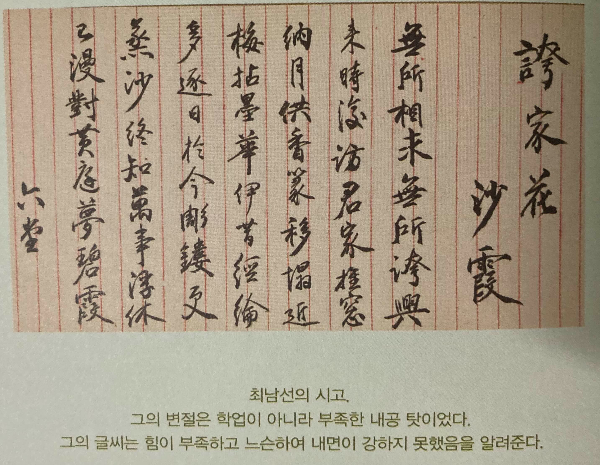 誇家花
沙霞
無所相求無所誇興
来時復訪君家推窓
納月供香篆移榻近
梅拈墨華伊昔經綸
多逐日於今彫鏤更
蒸沙終知萬事渾休
已漫對黄庭夢碧霞
六堂
최남선의 시고.
그의 변절은 학업이 아니라 부족한 내공 탓이었다.
그의 글씨는 힘이 부족하고 느슨하여 내면이 강하지 못했음을 알려준다.